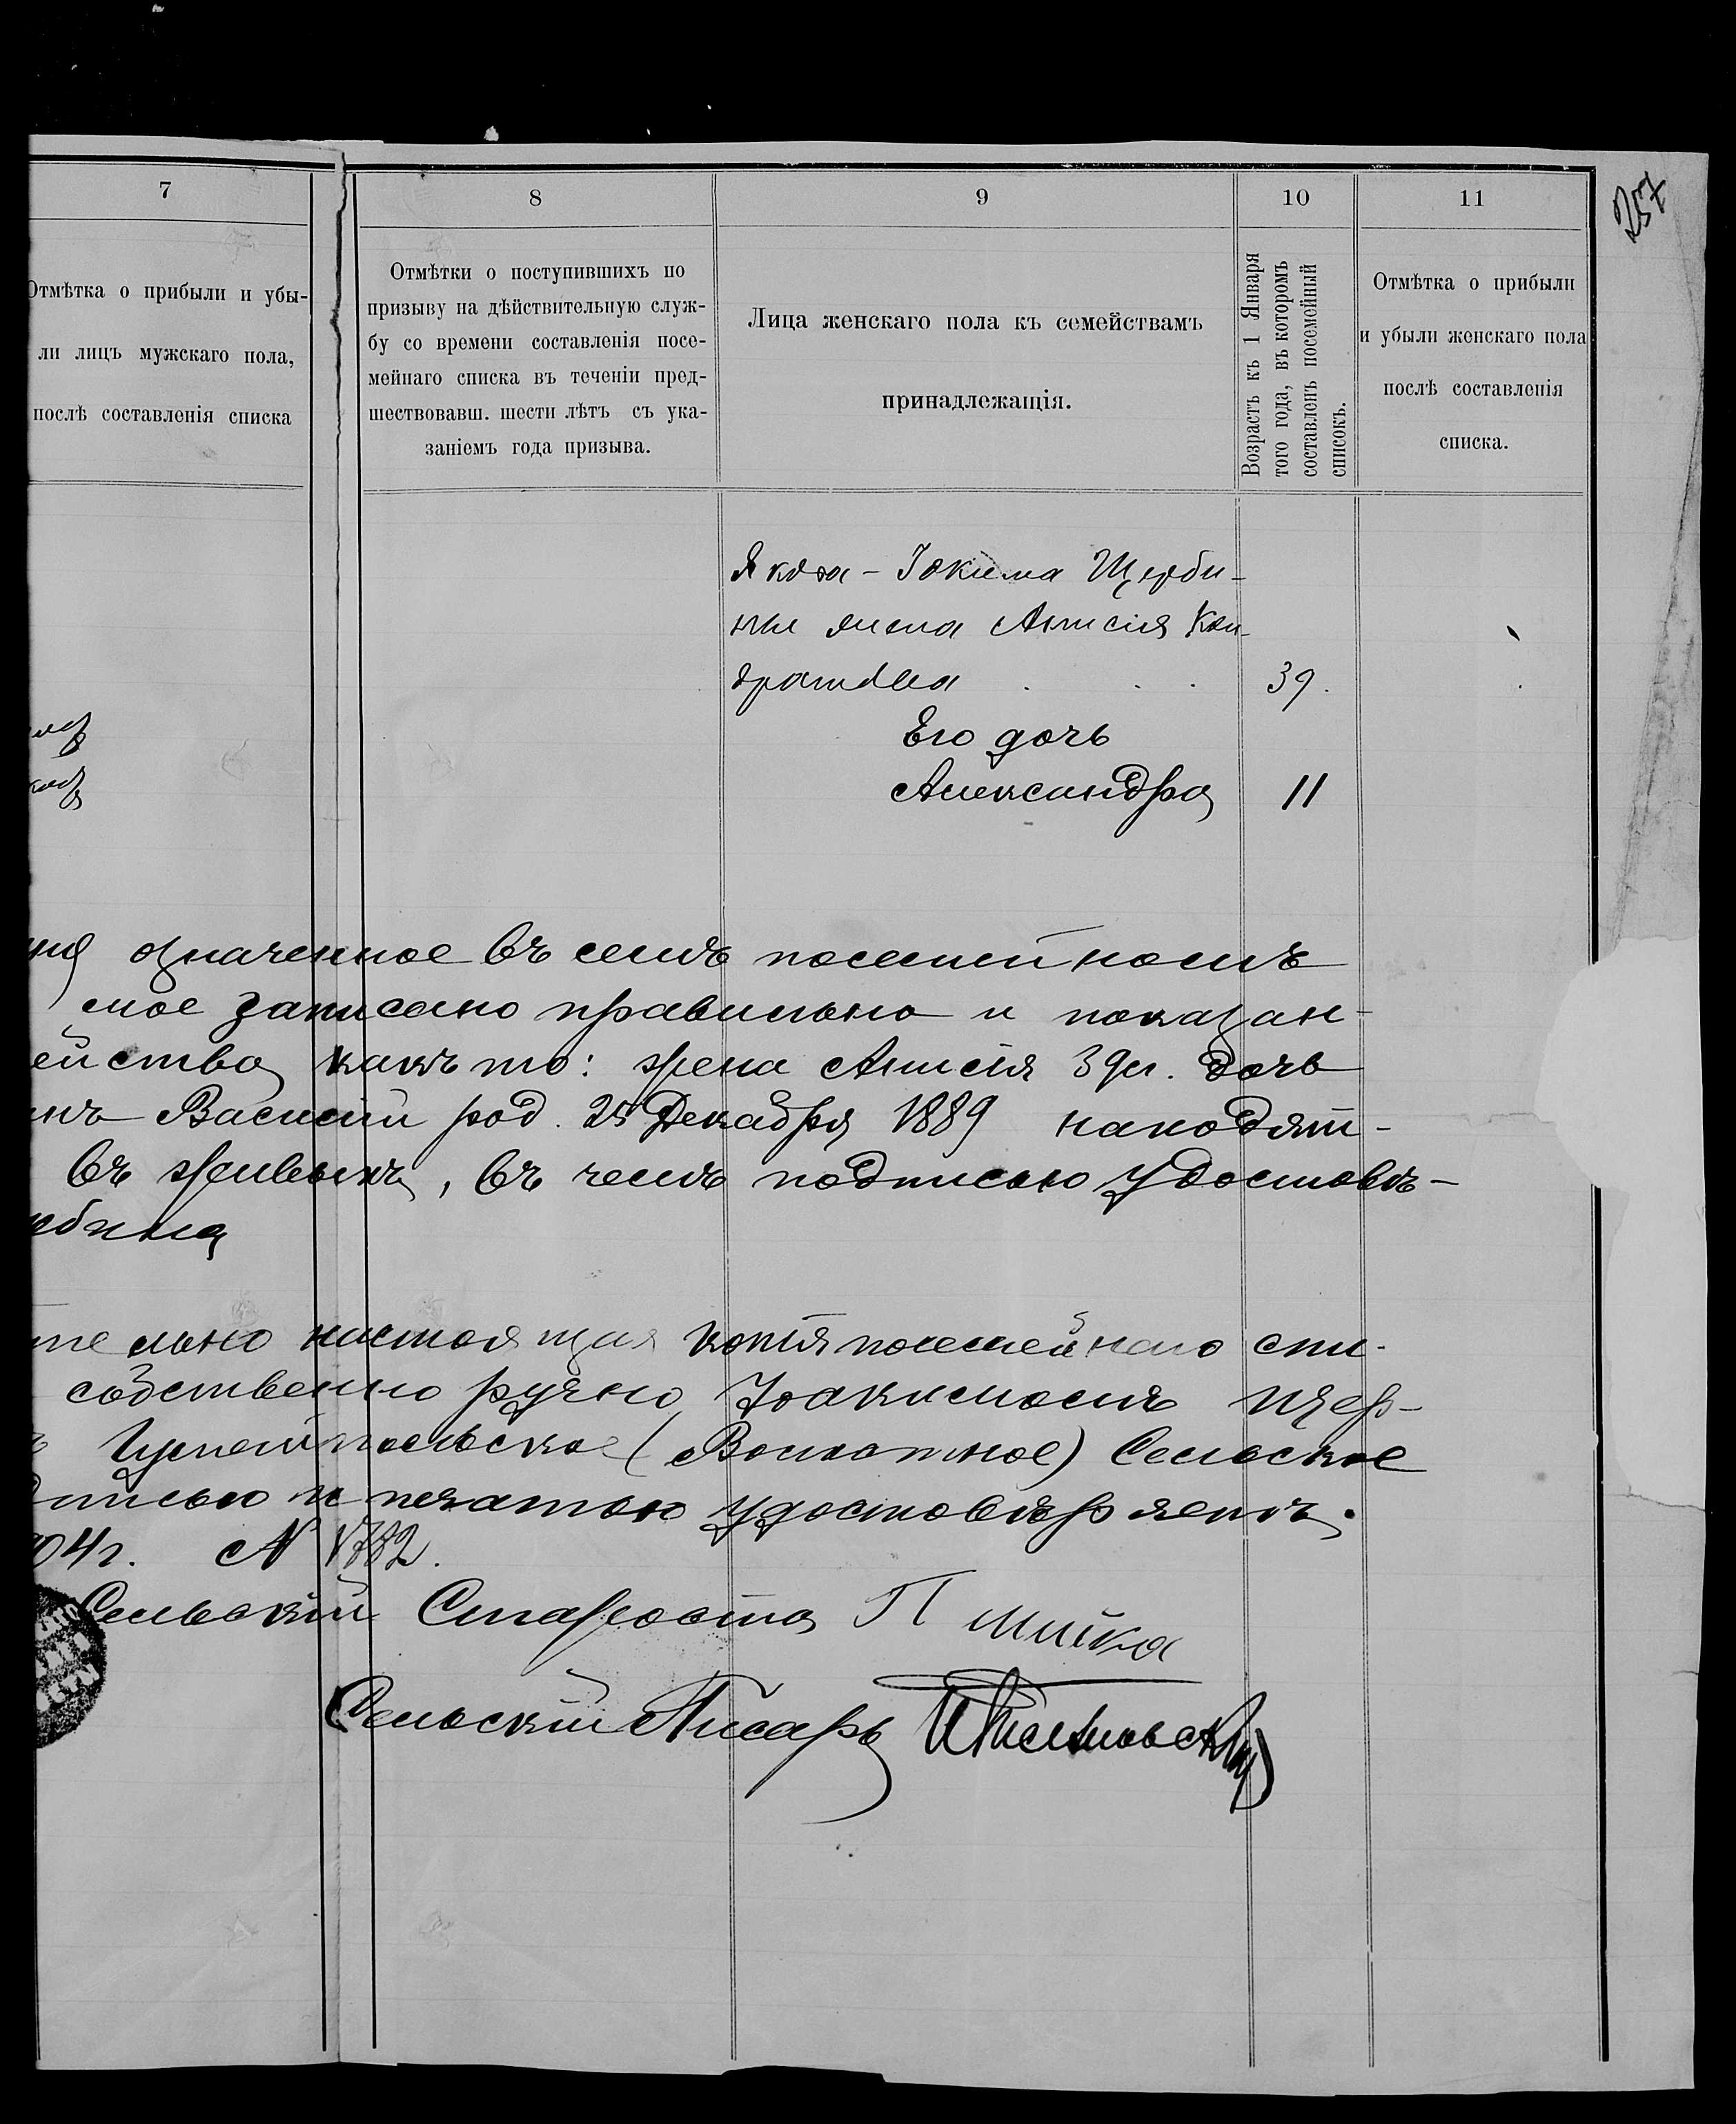 257
7
8
9
10
11
Отмѣтка о прибыли и убы-
ли лицъ мужскаго пола,
послѣ составленія списка
Отмѣтки о поступившихъ по
призыву на дѣйствительную служ-
бу со времени составленія посе-
мейнаго списка въ теченіи пред-
шествовавш. шести лѣтъ съ ука-
заніемъ года призыва.
Лица женскаго пола къ семействамъ
принадлежащія.
Возрастъ къ 1 Января
того года, въ которомъ
составленъ посемейный
списокъ.
Отмѣтка о прибыли
и убыли женскаго пола
послѣ составленія
списка.
Якова-Іокима Щерби-
ны жена Анисія Кон-
дратова . . . 39.
Его дочь
Александра 11
означенное въ семъ посемейномъ
мое записано правильно и показан-
ейства какъ то: жена Анисія 39л. дочь
нъ Василій род. 25 Декабря 1889 находят-
въ живыхъ, въ чемъ подписью удостовѣ-
рбина
тельно настоящая копія посемейнаго спи-
собственно ручно Іоакимомъ Щер-
сельское (Волостное) Сельское
дписью и печатью удостовѣряетъ.
04г. N 1782.
Сельскій Староста П Мишка
Сельскій Писарь